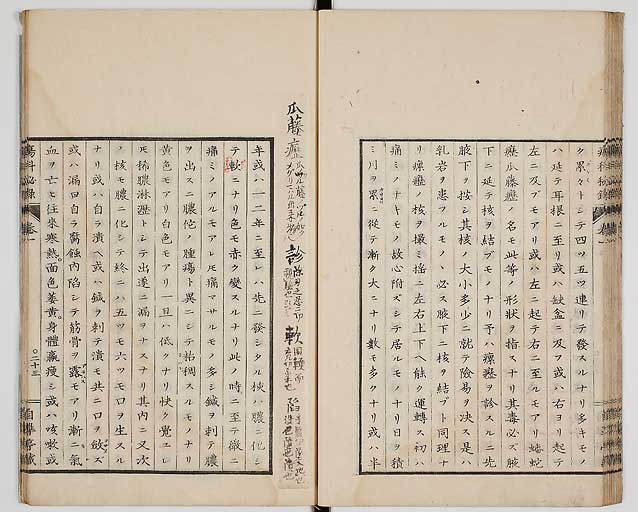 ク累々トシテ四ツ五ツ連リテ發スルナリ多キモノ
ハ延テ耳根ニ至リ或ハ缺盆ニ及フ或ハ右ヨリ起テ
左ニ及フモアリ或ハ左ニ起テ右ニ至ルモアリ蟠蛇
癧瓜藤癧ノ名モ此等ノ形状ヲ指スナリ其毒必ズ腋
下ニ延テ核ヲ結ブモノナリ予ハ瘰癧ヲ診スルニ先
腋下ヲ按シ其核ノ大小多少ニ就テ險易ヲ决ス是ハ
乳岩ヲ患フルモノハ必ス腋下ニ核ヲ結ブト同理ナ
リ瘰癧ノ核ヲ撮ミ揺ニ左右上下ヘ能ク運轉ス初ハ
痛ミノナキモノ故心附ズシテ居ルモノナリ日ヲ積
ミ月ヲ累ニ從テ漸ク大ニナリ数モ多クナリ或ハ半
瓜藤癧
診
軟
陷
年或ハ一二年ニ至レハ先ニ發シタル核ハ膿ニ化シ
テ軟ニナリ色モ赤ク變スルナリ此ノ時ニ至テ微ニ
痛ミノアルモアレ𪜈痛マサルモノ多シ鍼ヲ刺テ膿
ヲ出スニ膿他ノ腫瘍ト異ニシテ粘稠スルモノナリ
黄色モアリ白色モアリ一旦ハ低クナリ快ク覺ユレ
𪜈稀膿淋瀝トシテ出遂ニ漏ヲナスナリ其内ニ又次
ノ核モ膿ニ化シテ終ニハ五ツモ六ツモ口ヲ生スル
ナリ或ハ自ラ潰ヘ或ハ鍼ヲ刺テ潰モ共ニ口ヲ斂ズ
或ハ漏口自ラ腐蝕内陷シテ筋骨ヲ露モアリ漸ニ氣
血ヲ亡モ往来寒熱面色萎黄身體羸痩シ或ハ咳嗽或
瘍科秘録
卷一
〇二十三
自準亭藏